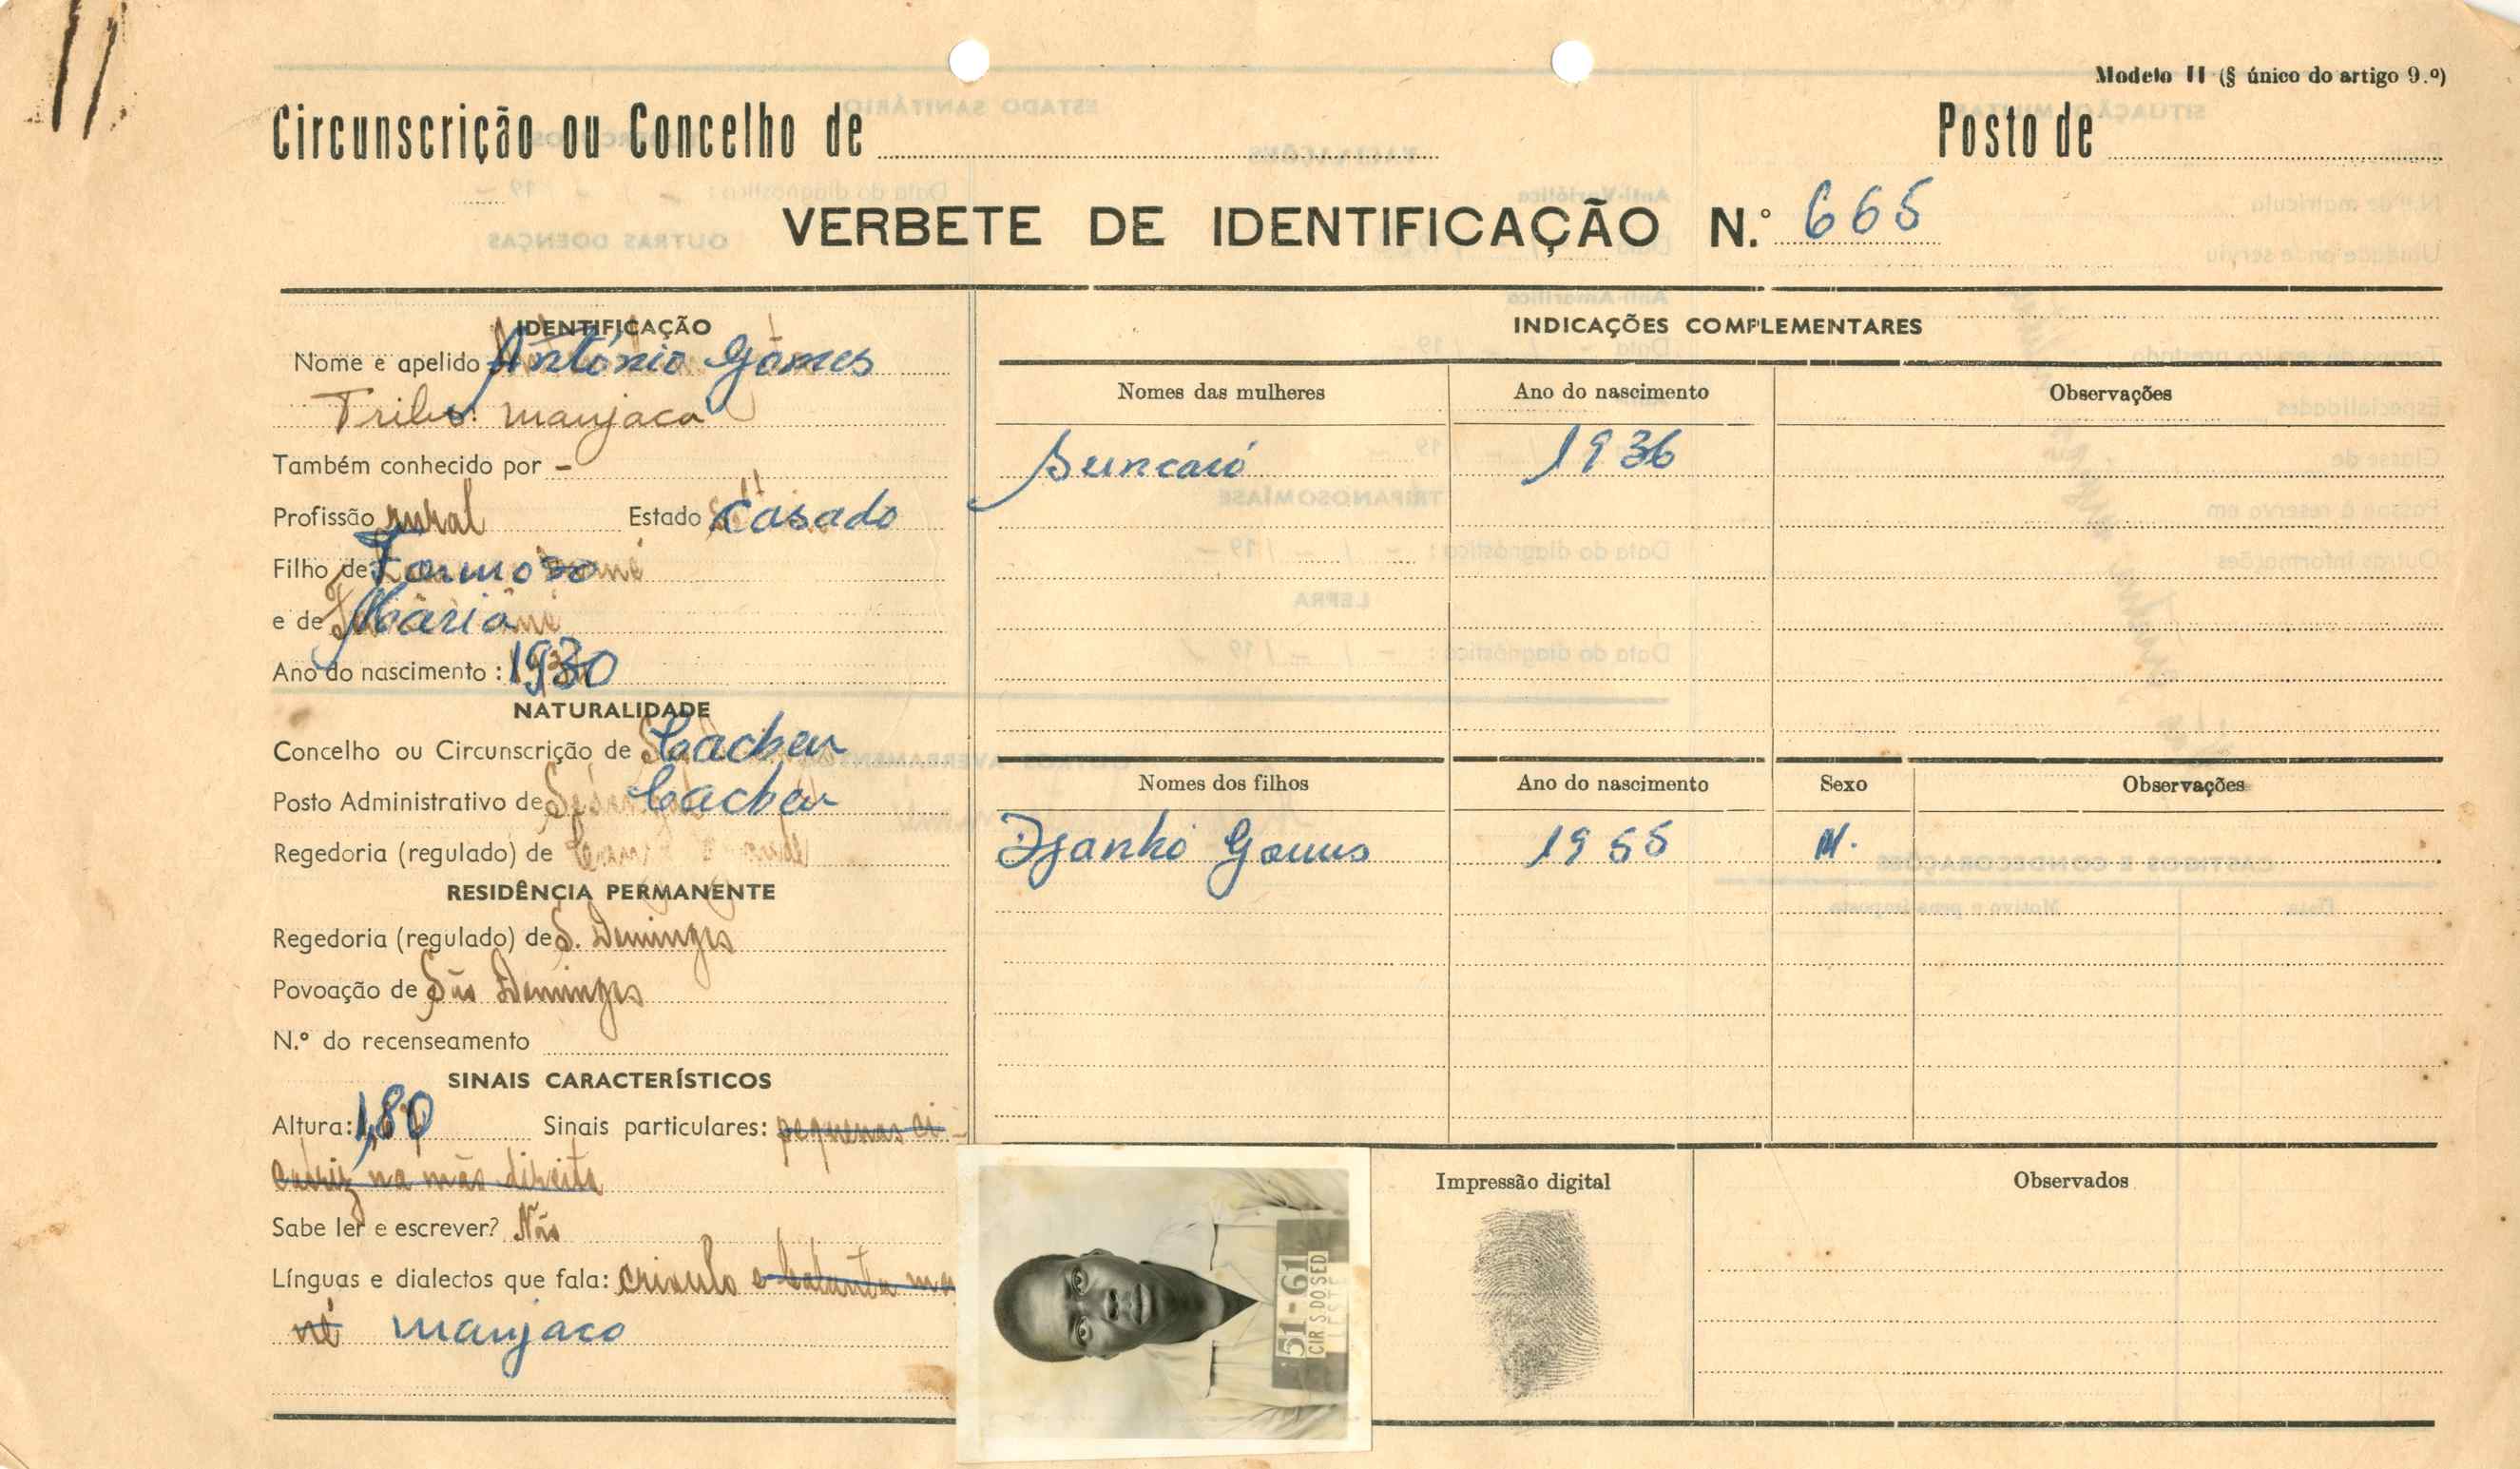 Modelo II (§ único do artigo 9.º)
Circunscrição ou Concelho de
Posto de
VERBETE DE IDENTIFICAÇÃO N.º 665
IDENTIFICAÇÃO
Nome e apelido António Gomes
Tribo: manjaca
Também conhecido por -
Profissão rural Estado Casado
Filho de Formoso
e de Maria
Ano do nascimento: 1930
NATURALIDADE
Concelho ou Circunscrição de Cacheu
Posto Administrativo de Cacheu
Regedoria (regulado) de
RESIDÊNCIA PERMANENTE
Regedoria (regulado) de S. Domingos
Povoação de São Domingos
N.º do recenseamento
SINAIS CARACTERÍSTICOS
Altura: 1,80 Sinais particulares: pequenas ci-
catriz na mão direita
Sabe ler e escrever? Não
Línguas e dialectos que fala: crioulo e balanta ma
né manjaco
INDICAÇÕES COMPLEMENTARES
Nomes das mulheres Ano do nascimento Observações
1936
Nomes dos filhos Ano do nascimento Sexo Observações
Djankó Gomes 1955 M.
51-61
CIR S. DO SED
LESTE
Impressão digital
Observados
ESTADO SANITÁRIO
OUTRAS DOENÇAS
TRIPANOSOMÍASE
Data do diagnóstico: - / - / 19 -
LEPRA
Data do diagnóstico: - / - / 19
CASTIGOS E CONDECORAÇÕES
Data Motivo e pena imposta